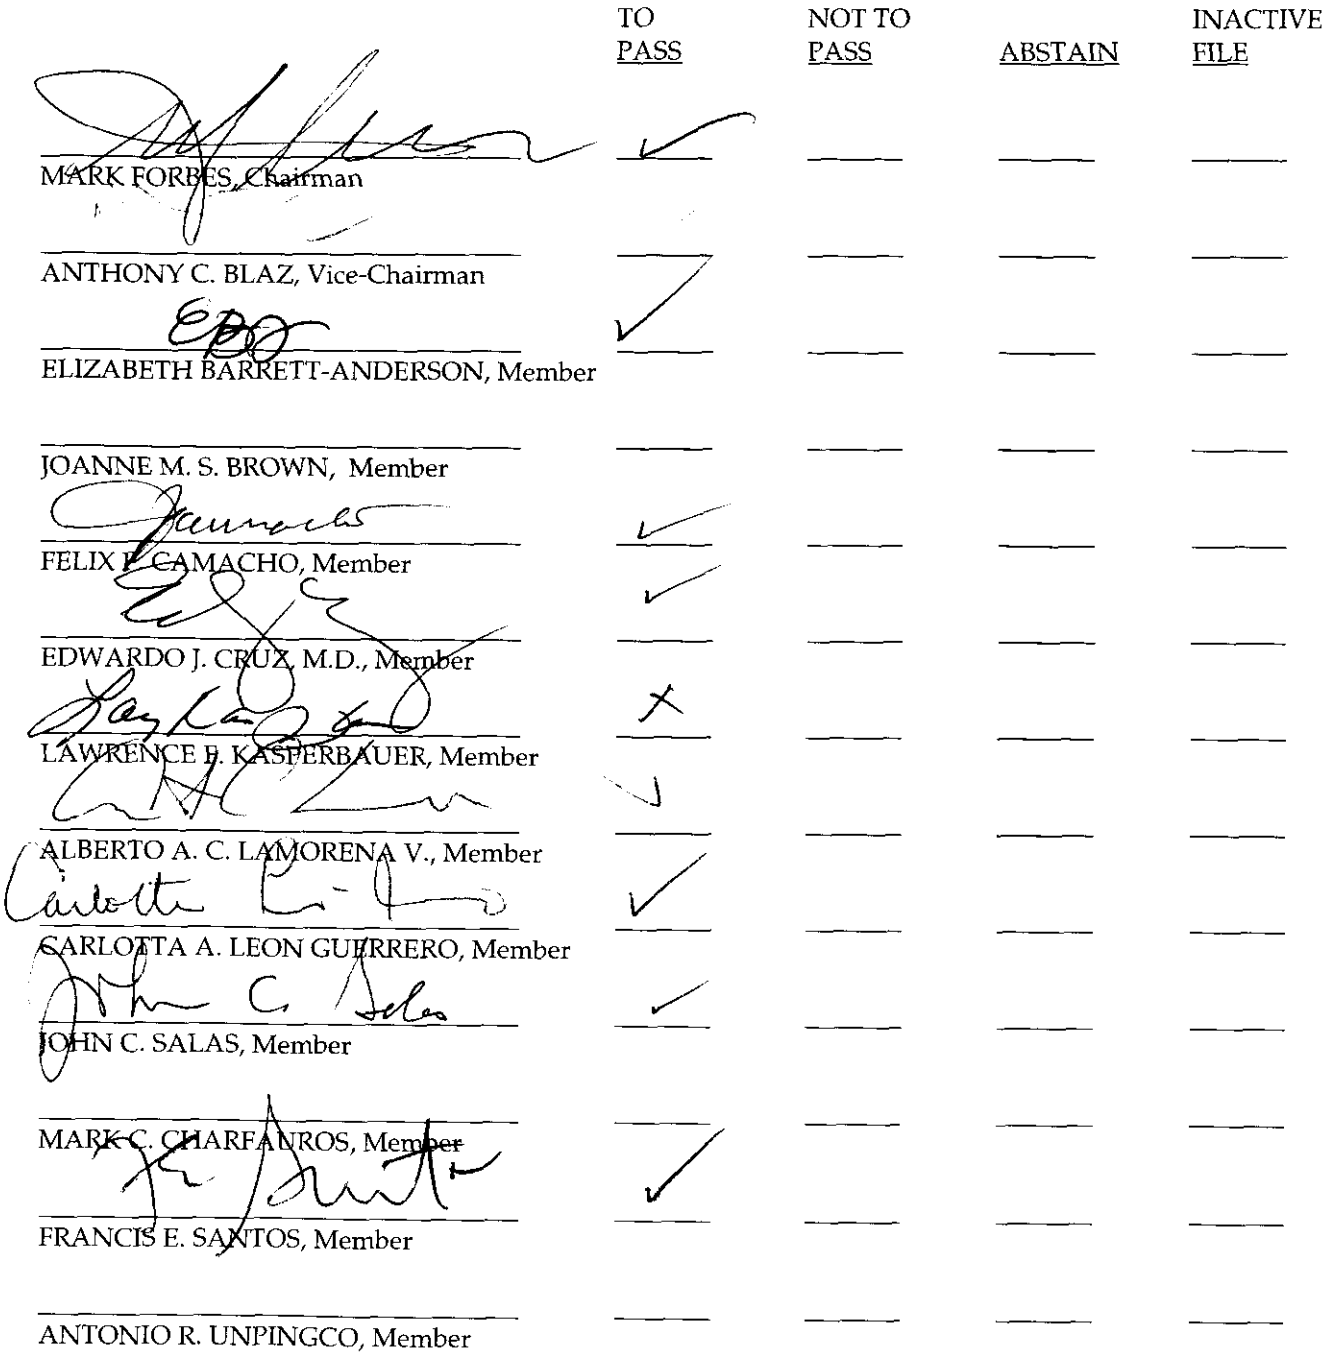 TO NOT TO INACTIVE
PASS PASS ABSTAIN FILE
MARK FORBES, Chairman
ANTHONY C. BLAZ, Vice-Chairman
EBA
ELIZABETH BARRETT-ANDERSON, Member
JOANNE M. S. BROWN, Member
Camacho
FELIX P. CAMACHO, Member
EDWARDO J. CRUZ, M.D., Member
LAWRENCE F. KASPERBAUER, Member
ALBERTO A. C. LAMORENA V., Member
Carlotta
CARLOTTA A. LEON GUERRERO, Member
John C. Salas
JOHN C. SALAS, Member
MARK C. CHARFAUROS, Member
Santos
FRANCIS E. SANTOS, Member
ANTONIO R. UNPINGCO, Member